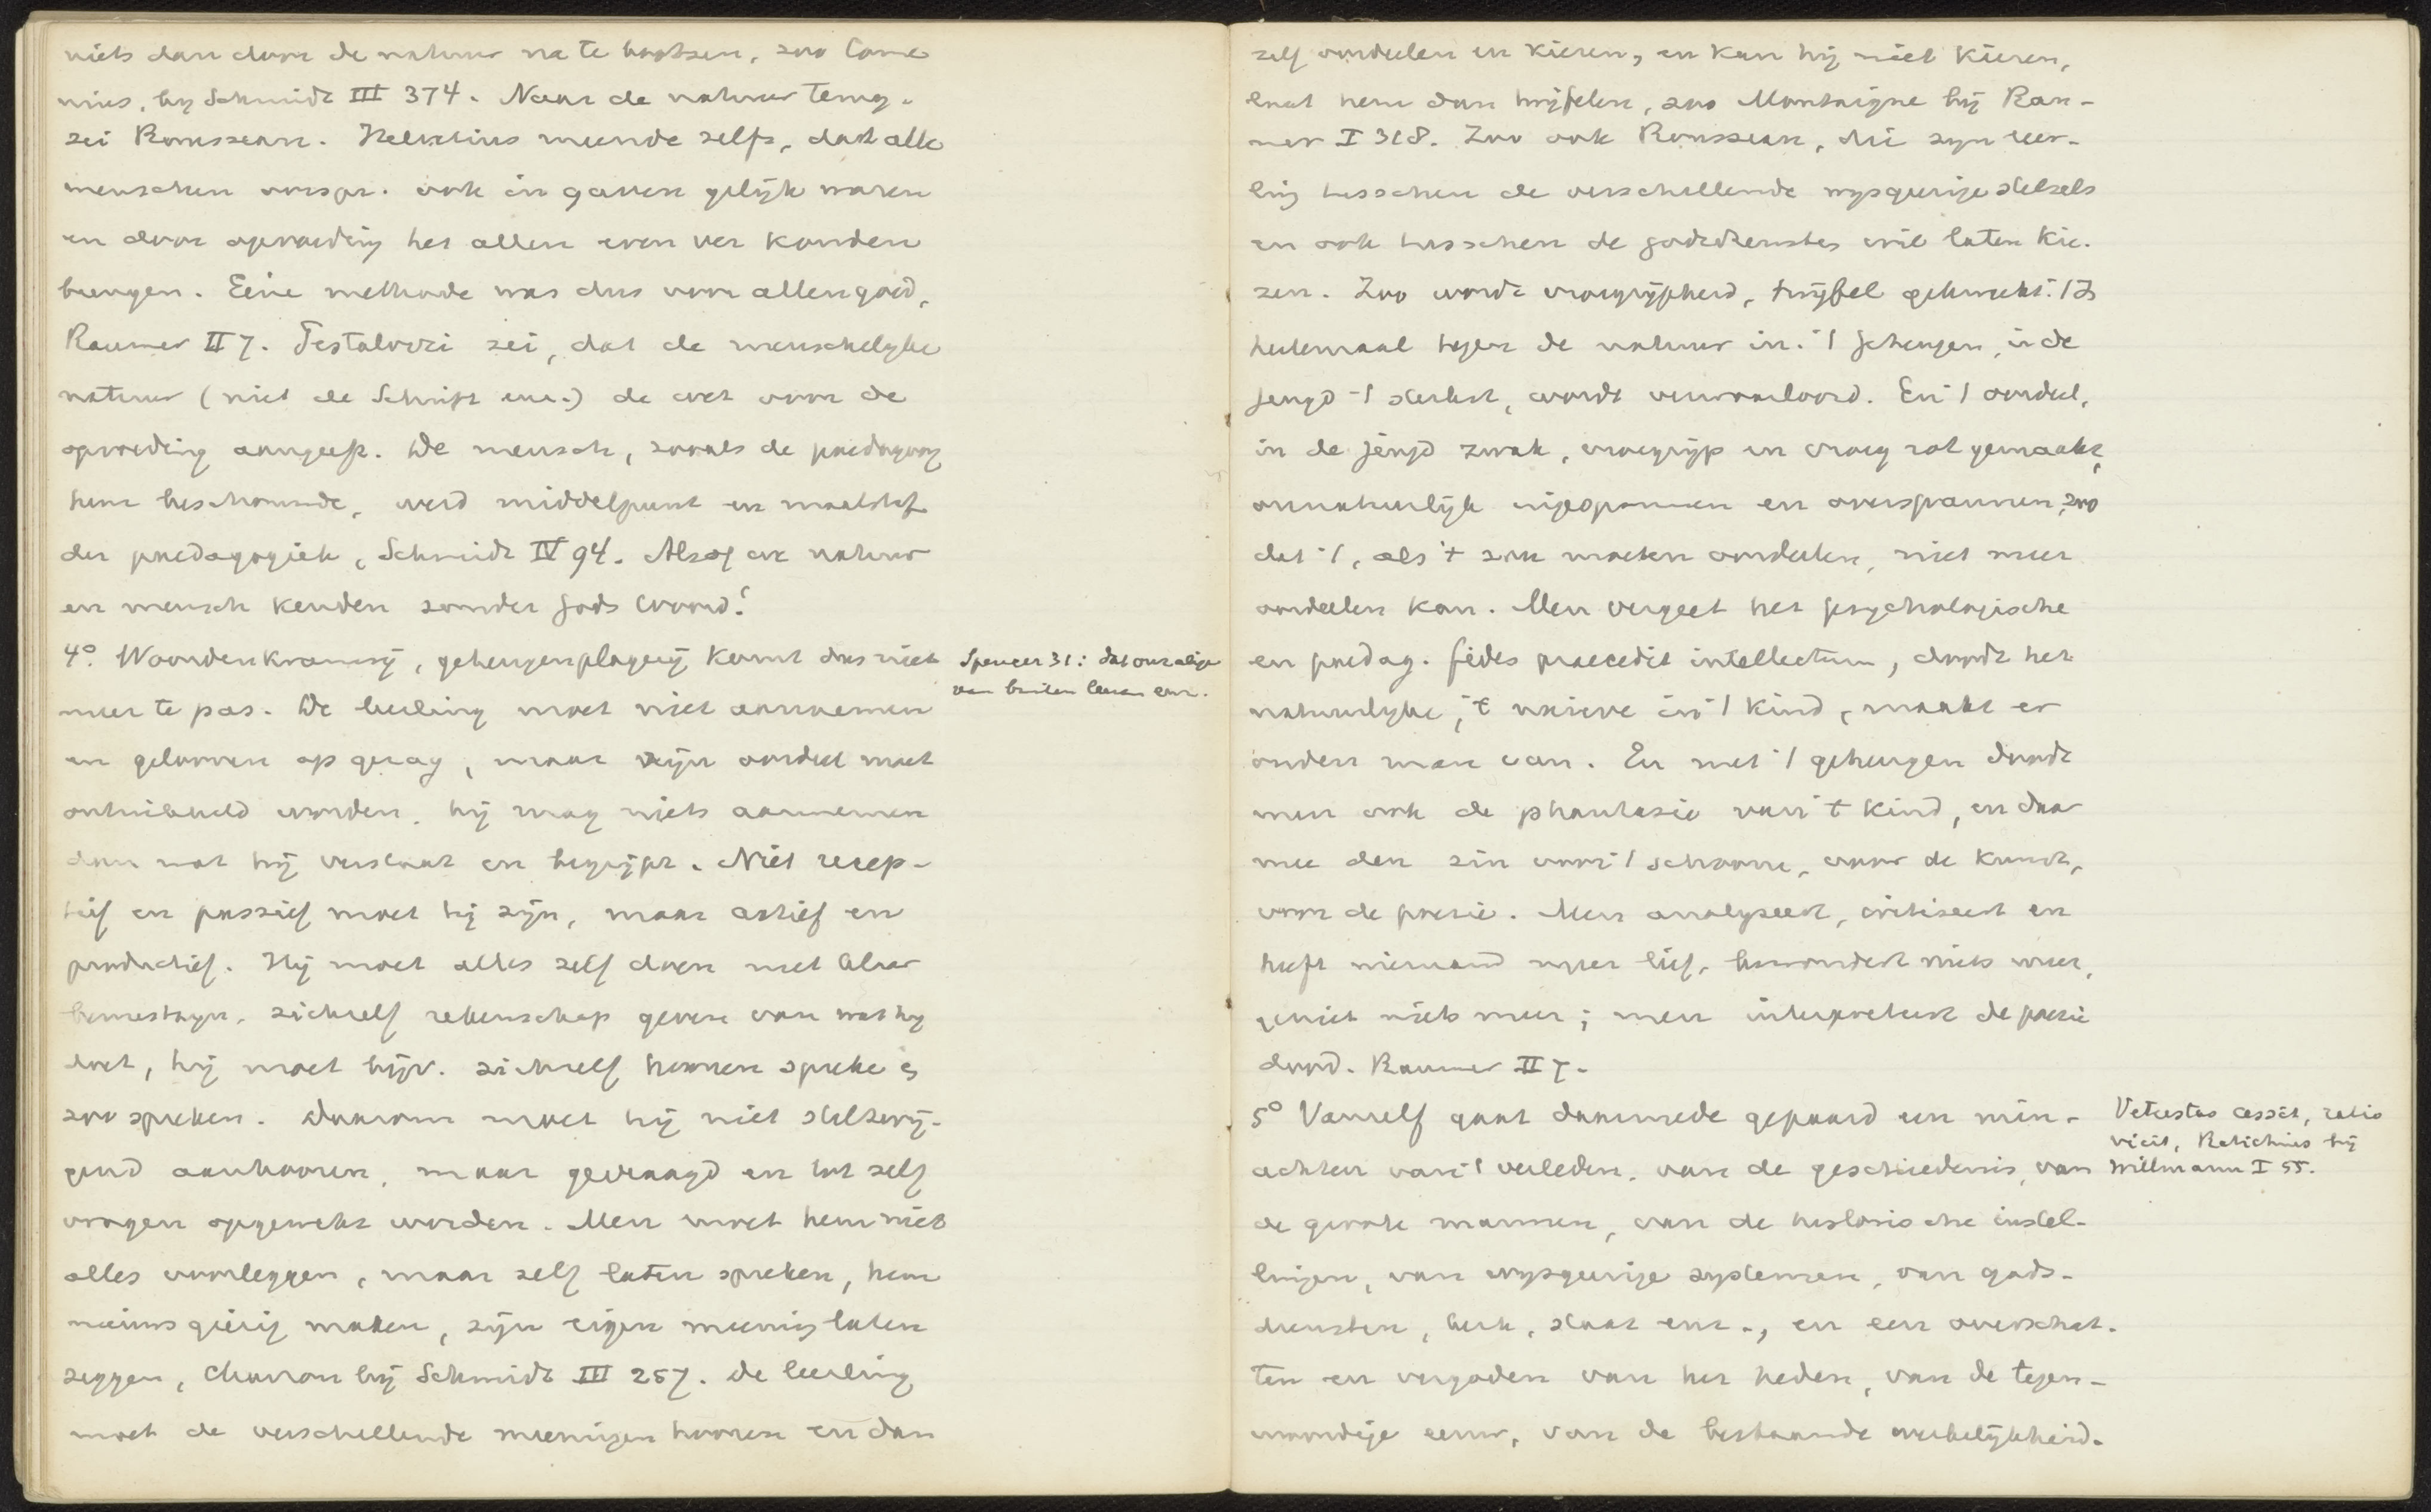 niets dan door de natuur na te bootsen, zoo Come
nius, by Schmidt III 374. Naar de natuur terug.
zei Rousseau. Helvetius meende zelfs, dat alle
menschen oorspr. ook in gaven gelijk waren
en door opvoeding het allen even ver konden
brengen. Eéne methode was dus voor allen goed,
Raumer II 7. Pestalozzi zei, dat de menschelyke
natuur (niet de Schrift enz.) de wet voor de
opvoeding aangeeft. De mensch, zooals de paedagoog
hem beschouwde, werd middelpunt en maatstaf
der paedagogiek, Schmidt IV 94. Alsof we natuur
en mensch kenden zonder Gods Woord!
4º. Woordenkramerij, geheugenplagerij komt dus niet
meer te pas. De leerling moet niet aannemen
en gelooven op gezag, maar zijn oordeel moet
ontwikkeld worden. hij mag niets aannemen
dan wat hij verstaat en begrijpt. Niet recep-
tief en passief moet hij zijn, maar actief en
productief. Hij moet alles zelf doen met klaar
bewustzyn, zichzelf rekenschap geven van wat hy
doet, hij moet bijv. zichzelf hooren spreken
zoo spreken. Daarom moet hij niet stilzwij-
gend aanhooren, maar gevraagd en tot zelf
vragen opgewekt worden. Men moet hem niet
alles voorleggen, maar zelf laten spreken, hem
nieuwsgierig maken, zijn eigen meening laten
zeggen, Charron bij Schmidt III 257. De leerling
moet de verschillende meeningen hooren en dan
Spencer 31: dat ouralige
van buiten leeren enz.
zelf oordeelen en kiezen, en kan hij niet kiezen,
laat hem dan twijfelen, zoo Montaigne bij Rau-
mer I 318. Zoo ook Rousseau, die zyn leer-
ling tusschen de verschillende wysgeerige stelsels
en ook tusschen de godsdiensten wil laten kie-
zen. Zoo wordt vroegrijpheid, twijfel gekweekt. 't Is
heelemaal tegen de natuur in. 't Geheugen, in de
jeugd 't sterkst, wordt verwaarloosd. En 't oordeel,
in de jeugd zwak, vroegrijp en vroeg rot gemaakt,
onnatuurlijk ingespannen en overspannen, zoo
dat 't, als 't zou moeten oordeelen, niet meer
oordeelen kan. Men vergeet het psychologische
en paedag. fides praecedit intellectum, doodt het
natuurlyke, 't naieve in 't kind, maakt er
ouden man van. En met 't geheugen doodt
men ook de phantasie van 't kind, en daar
mee den zin voor 't schoone, voor de kunst,
voor de poezie. Men analyseert, critiseert en
heeft niemand meer lief, bewondert niets meer,
geniet niets meer; men interpreteert de poezie
dood. Raumer II 7.
5º Vanzelf gaat daarmede gepaard een min-
achten van 't verleden, van de geschiedenis, van
de groote mannen, van de historische instel-
lingen, van wysgeerige systemen, van gods-
diensten, kerk, staat enz., en een overschat-
ten en vergoden van het heden, van de tegen-
woordige eeuw, van de bestaande werkelijkheid.
Vetustas cessit, ratio
vicit, Ratichius bij
Willmann I 55.